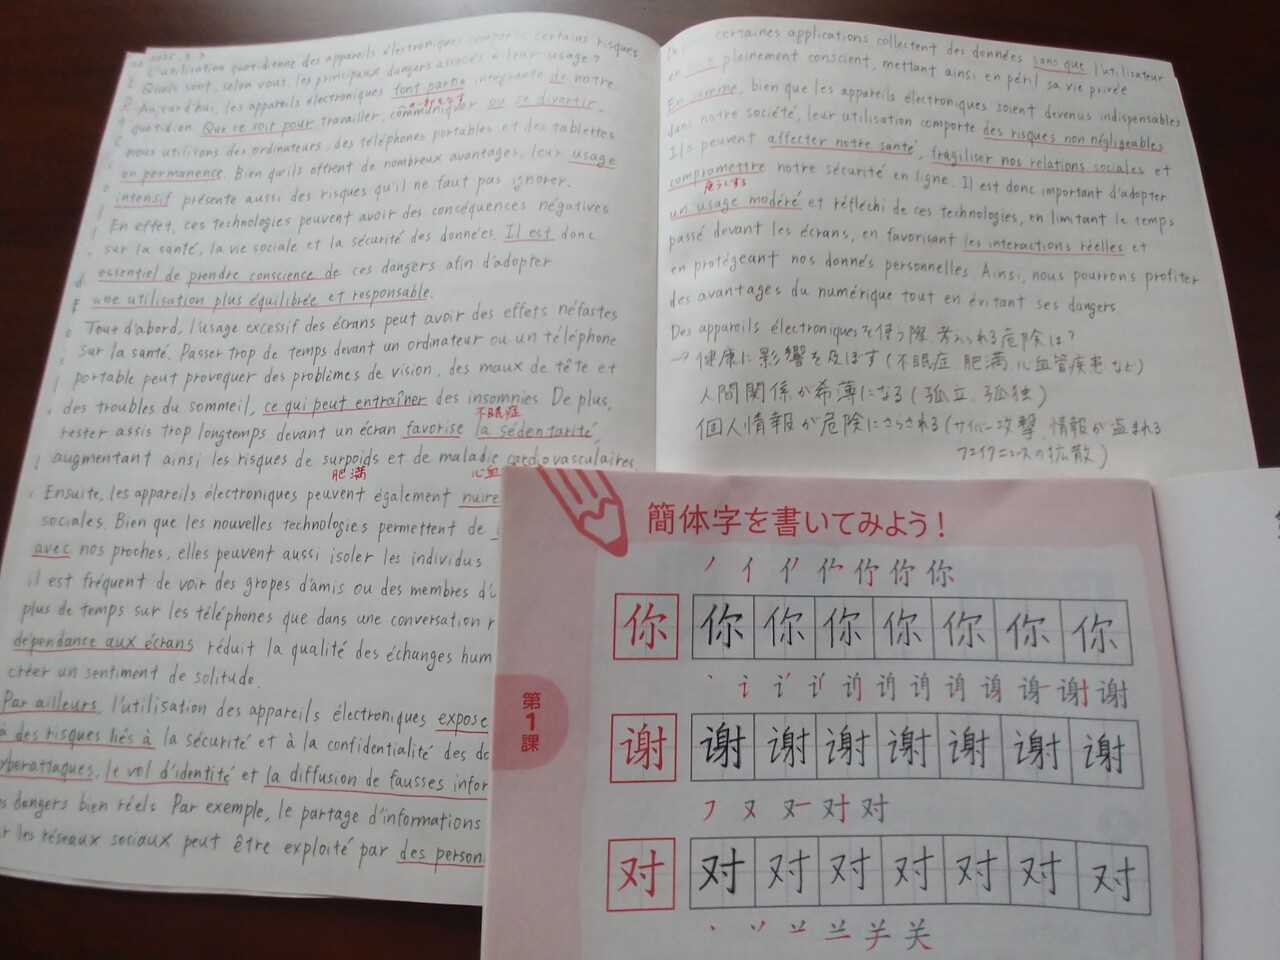 2025.3.3
L'utilisation quotidienne des appareils électroniques comporte certains risques.
Quels sont, selon vous, les principaux dangers associés à leur usage?
Aujourd'hui, les appareils électroniques font partie intégrante de notre
quotidien. Que ce soit pour travailler, communiquer ou se divertir,
nous utilisons des ordinateurs, des téléphones portables et des tablettes
en permanence. Bien qu'ils offrent de nombreux avantages, leur usage
intensif présente aussi des risques qu'il ne faut pas ignorer.
En effet, ces technologies peuvent avoir des conséquences négatives
sur la santé, la vie sociale et la sécurité des données. Il est donc
essentiel de prendre conscience de ces dangers afin d'adopter
une utilisation plus équilibrée et responsable.
Tout d'abord, l'usage excessif des écrans peut avoir des effets néfastes
sur la santé. Passer trop de temps devant un ordinateur ou un téléphone
portable peut provoquer des problèmes de vision, des maux de tête et
des troubles du sommeil, ce qui peut entraîner des insomnies. De plus,
不眠症
rester assis trop longtemps devant un écran favorise la sédentarité,
augmentant ainsi les risques de surpoids et de maladie cardiovasculaires.
肥満 心血
Ensuite, les appareils électroniques peuvent également nuire
sociales. Bien que les nouvelles technologies permettent de
avec nos proches, elles peuvent aussi isoler les individus
il est fréquent de voir des gropes d'amis ou des membres
plus de temps sur les téléphones que dans une conversation
dépendance aux écrans réduit la qualité des échanges hum
créer un sentiment de solitude.
Par ailleurs, l'utilisation des appareils électroniques expose
à des risques liés à la sécurité et à la confidentialité des
cyberattaques, le vol d'identité et la diffusion de fausses infor
dangers bien réels Par exemple, le partage d'informations
les réseaux sociaux peut être exploité par des person
certaines applications collectent des données sans que l'utilisateur
en soit pleinement conscient, mettant ainsi en péril sa vie privée
En somme, bien que les appareils électroniques soient devenus indispensables
dans notre société, leur utilisation comporte des risques non négligeables
Ils peuvent affecter notre santé, fragiliser nos relations sociales et
compromettre notre sécurité en ligne. Il est donc important d'adopter
危うくする
un usage modéré et réfléchi de ces technologies, en limitant le temps
passé devant les écrans, en favorisant les interactions réelles et
en protégeant nos donnés personnelles Ainsi, nous pourrons profiter
des avantages du numérique tout en évitant ses dangers
Des appareils électroniquesを使う際、考えられる危険は?
→健康に影響を及ぼす(不眠症 肥満、心血管疾患など)
人間関係が希薄になる(孤立、孤独)
個人情報が危険にさらされる(サイバー攻撃、情報が盗まれる
フェイクニュースの拡散)
簡体字を書いてみよう!
第1課
你 你 你 你 你 你 你 你
谢 谢 谢 谢 谢 谢 谢 谢
对 对 对 对 对 对 对 对